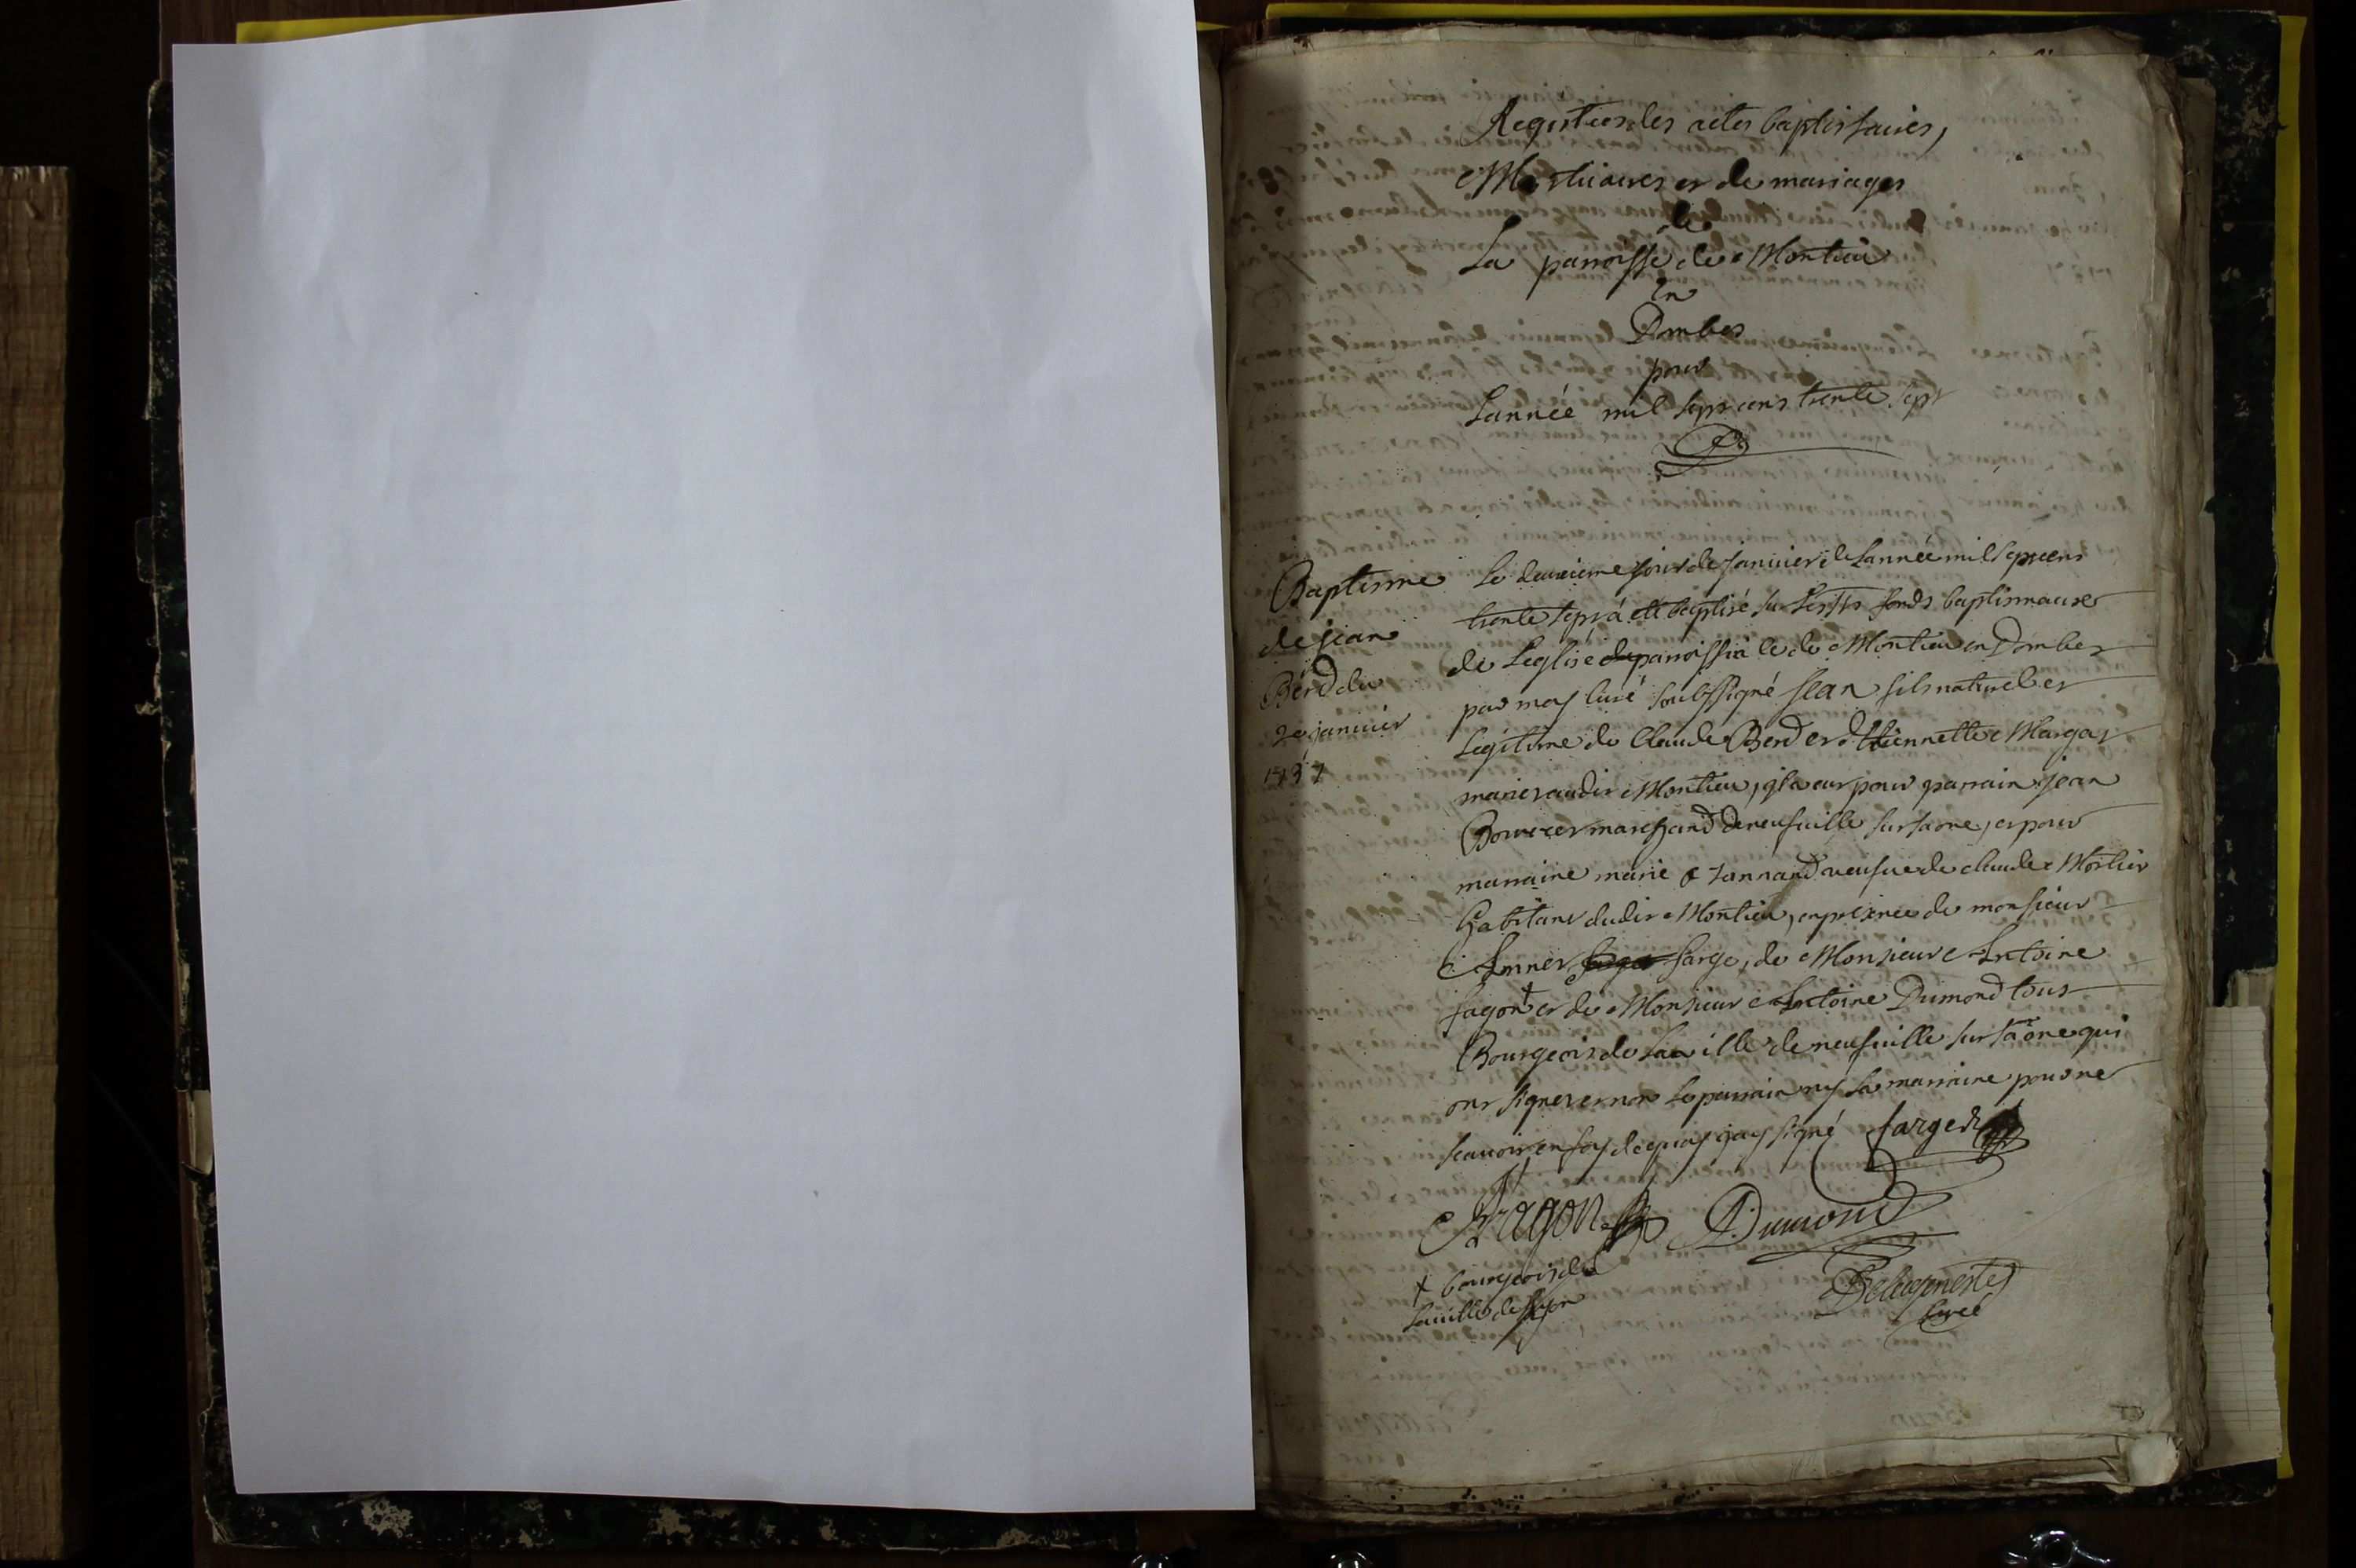 Registres des actes baptistaires,
Mortuaires et de mariages
de
La parroisse de Montieu
en
Dombes
pour
L'année mil sept cens trente sept
Baptisme
de jean
Berd du
2e janvier
1737
Le deuxieme jour de janvier de Lannée mil sept cens
trente sept á eté baptisé sur les sts fonds baptismaux
de Leglise parroissialle de Montieu en Dombes
par moy curé soussigné Jean fils naturel et
Legitime de Claude Berd et d'Etiennette Margat
mariez audit Montieu, il a eut pour parrain jean
marchand de neufville sur saone, et pour
marraine marie veufve de claude Mortier
habitant dudit Montieu, en presence de monsieur
farge, de Monsieur Antoine
fagon † et de Monsieur Antoine Dumond tous
Bourgeois de La ville de neufville sur saône qui
ont signez et non le parrain ny La marraine pour ne
scavoir en foy de quoy j'ay signé farge
fagon Dumond
† bourgeois de
La ville de Lyon
Curé